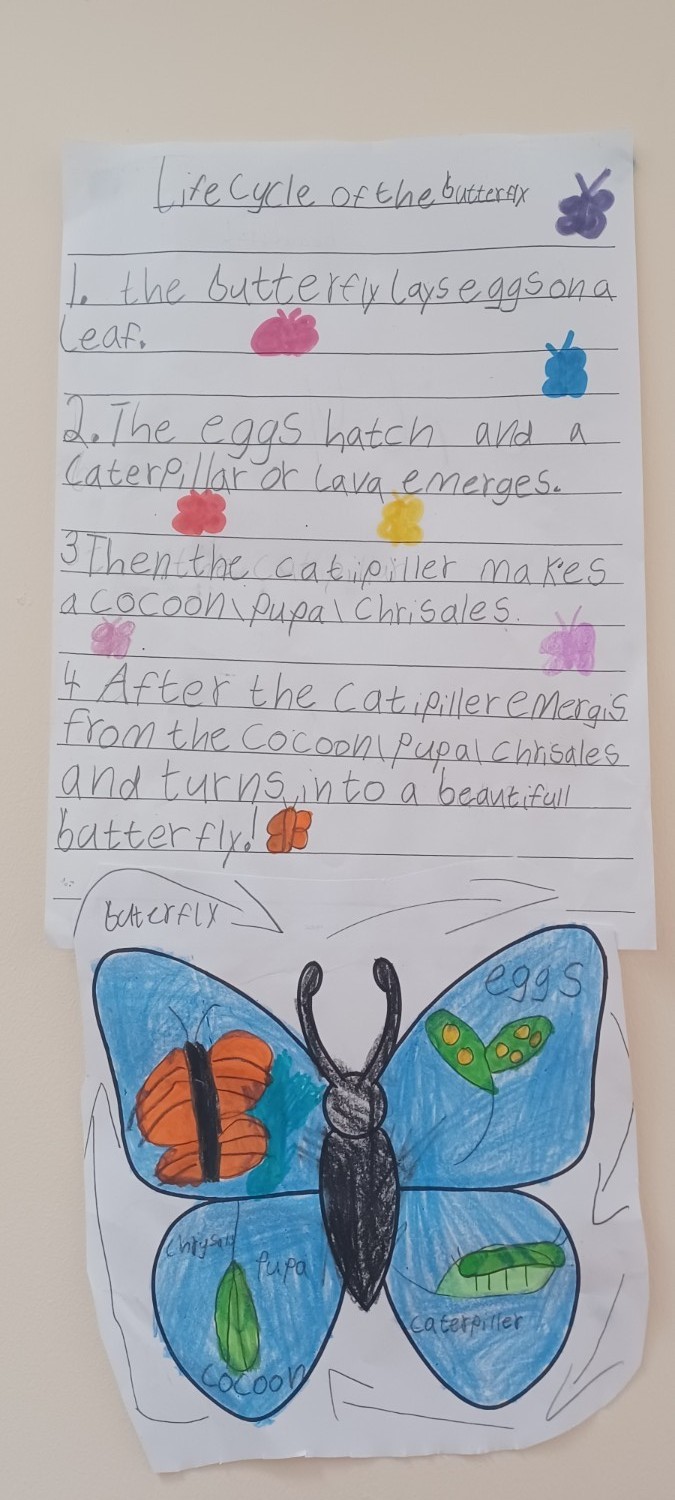 Life Cycle of the butterfly
1. the butterfly lays eggs on a
leaf.
2. The eggs hatch and a
caterpillar or lava emerges.
3 Then the catipiller makes
a cocoon\pupa\chrisales.
4 After the catipiller emergis
from the cocoon\pupa\chrisales
and turns into a beautifull
batterfly!
buterfly
eggs
pupa
caterpiller
cocoon